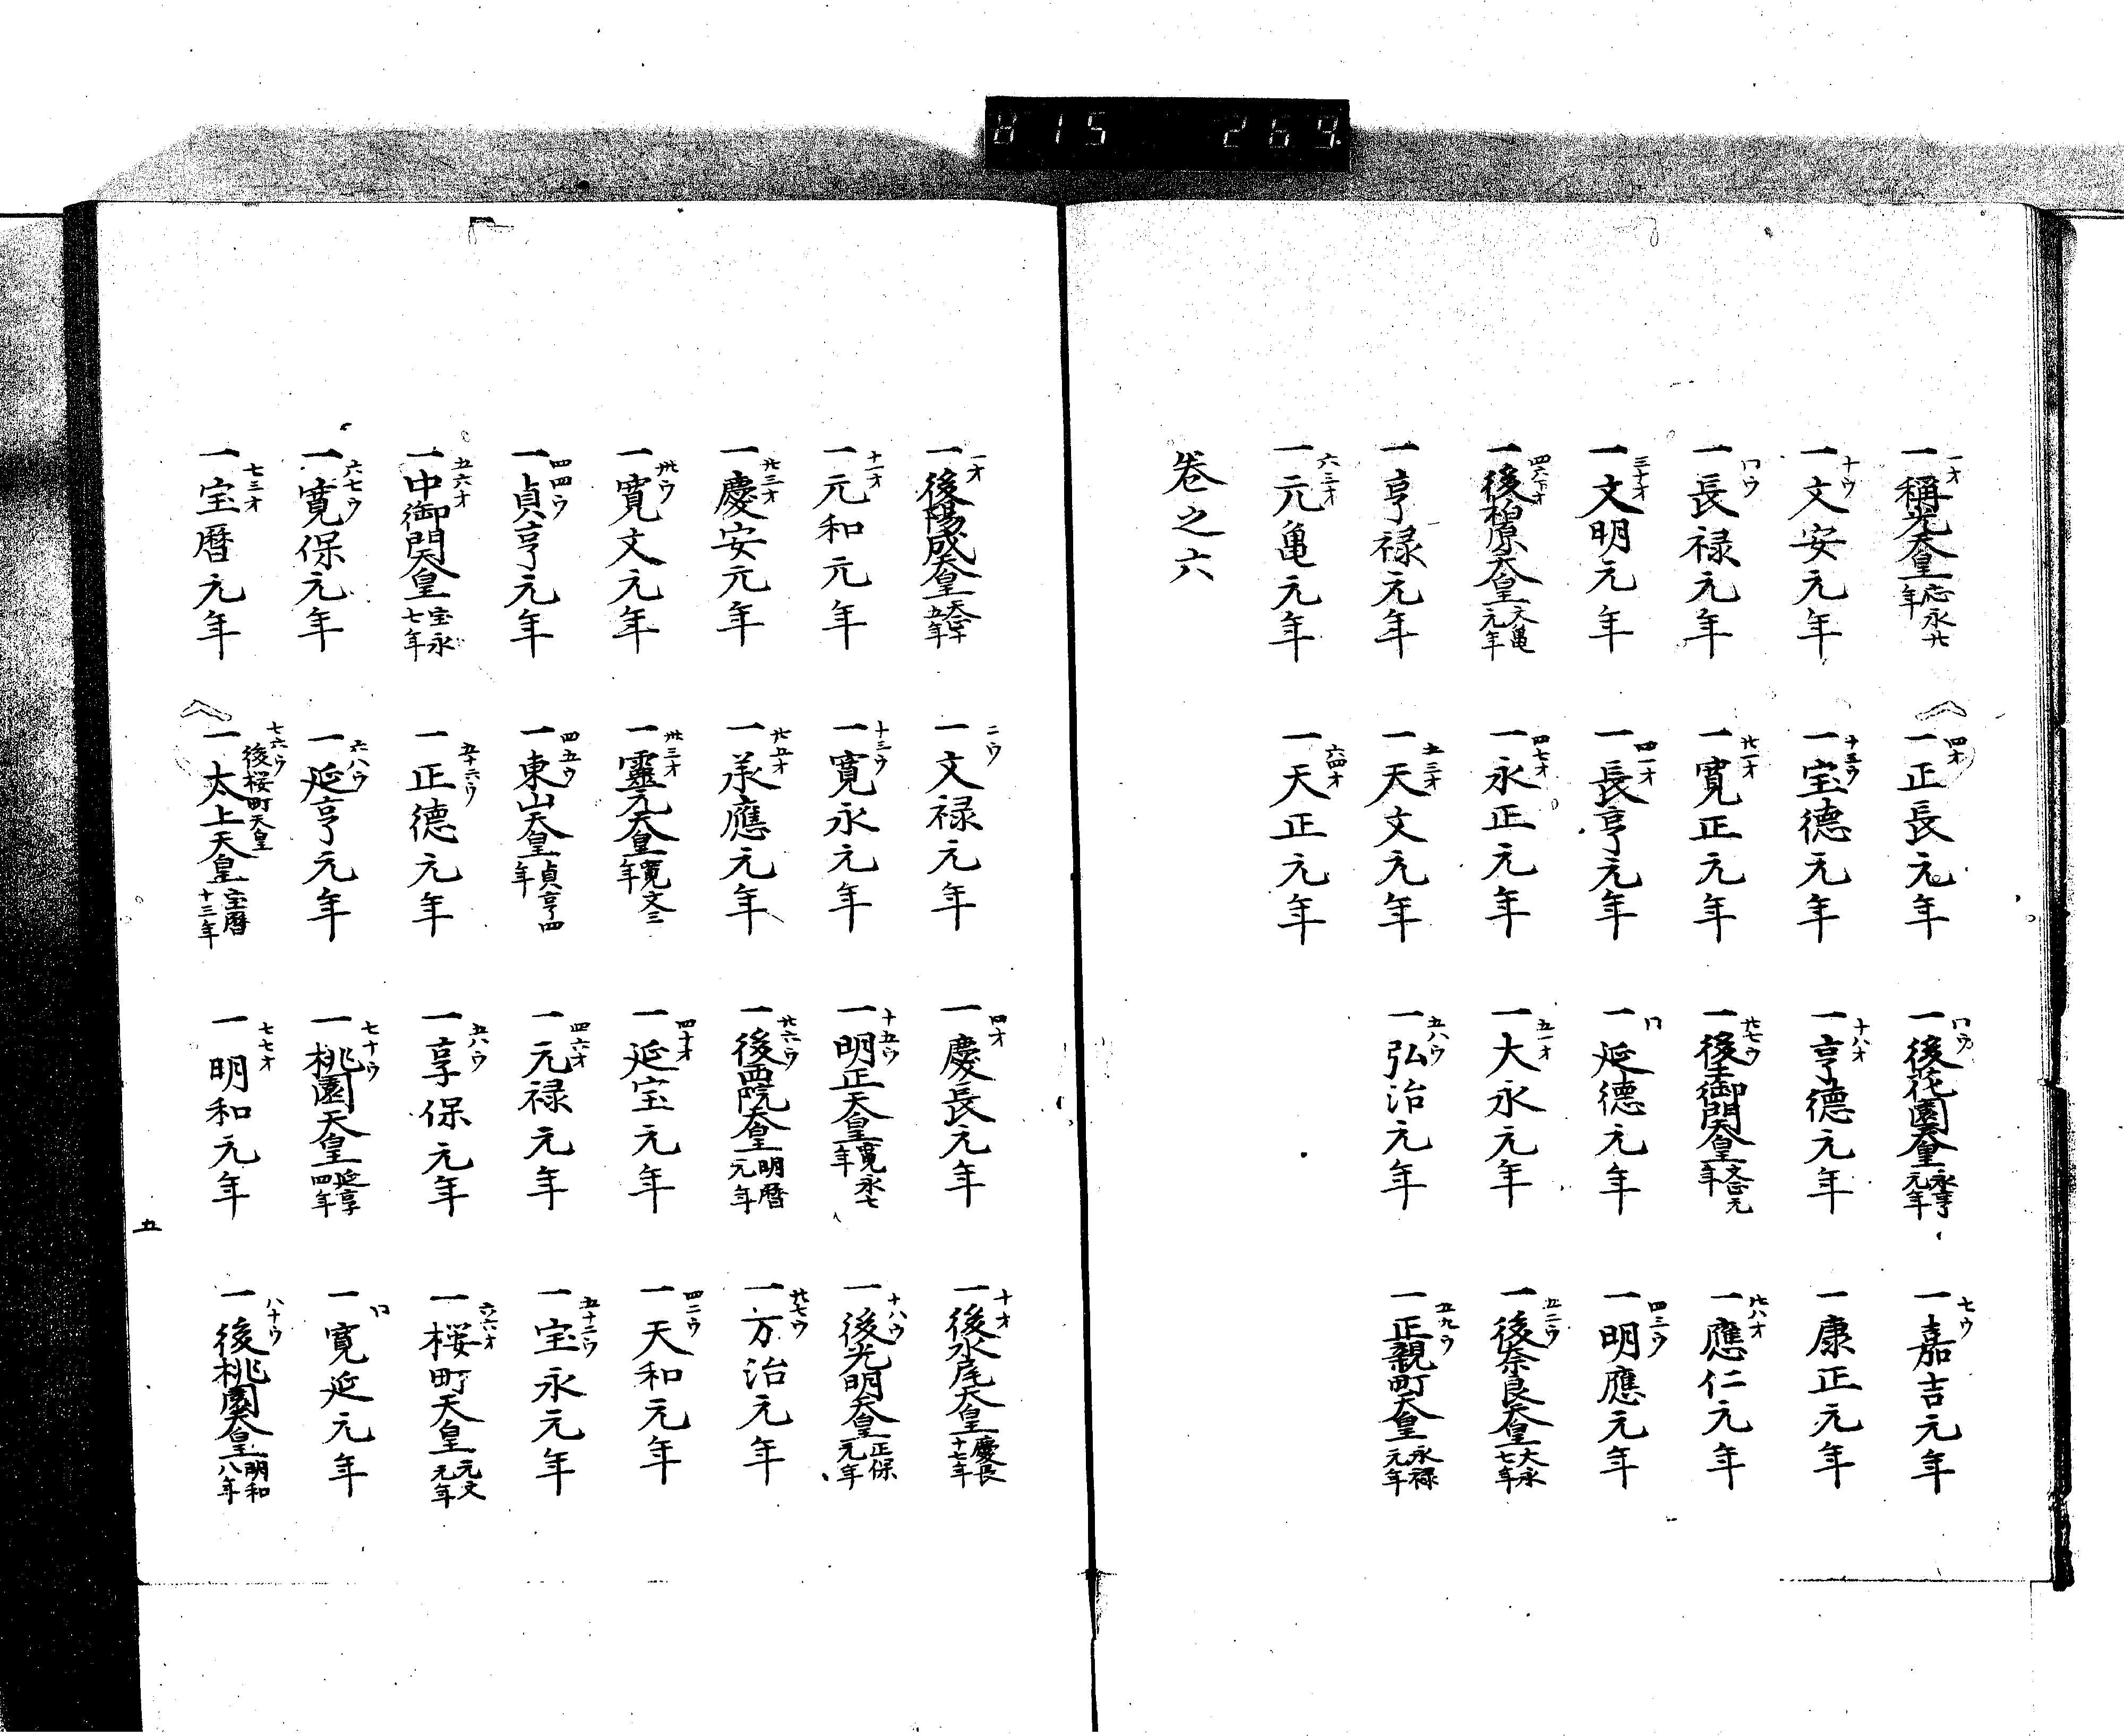 815 269
一稱光天皇 応永廿年 一才
一正長元年 四才
一後花園天皇 永享元年 同ウ
一嘉吉元年 七ウ
一文安元年 十ウ
一宝德元年 十五ウ
一亨德元年 十八才
一康正元年
一長禄元年 同ウ
一寛正元年 廿一才
一後土御門天皇 文正元年 廿七ウ
一應仁元年 廿八才
一文明元年 三十才
一長亨元年 四一才
一延德元年 同
一明應元年 四三ウ
一後柏原天皇 文亀元年 四六下才
一永正元年 四七才
一大永元年 五一才
一後奈良天皇 大永七年 五二ウ
一亨禄元年
一天文元年 五三才
一弘治元年 五八ウ
一正親町天皇 永禄元年 五九ウ
一元亀元年 六三才
一天正元年 六四才
巻之六
一後陽成天皇 天正十五年 一才
一文禄元年 二ウ
一慶長元年 四才
一後水尾天皇 慶長十七年 十才
一元和元年 十一才
一寛永元年 十三ウ
一明正天皇 寛永七年 十五ウ
一後光明天皇 正保元年 十八ウ
一慶安元年 廿三才
一承應元年 廿五才
一後西院天皇 明暦元年 廿六ウ
一万治元年 廿七ウ
一寛文元年 卅ウ
一靈元天皇 寛文三年 卅三才
一延宝元年 四十才
一天和元年 四二ウ
一貞亨元年 四四ウ
一東山天皇 貞亨四年 四五ウ
一元禄元年 四六才
一宝永元年 五十二ウ
一中御門天皇 宝永七年 五六才
一正德元年 五十六ウ
一享保元年 五八ウ
一桜町天皇 元文元年 六六才
一寛保元年 六七ウ
一延亨元年 六八ウ
一桃園天皇 延享四年 七十ウ
一寛延元年 同
一宝暦元年 七三才
一太上天皇 後桜町天皇 宝暦十三年 七六ウ
一明和元年 七七才
一後桃園天皇 明和八年 八十ウ
五